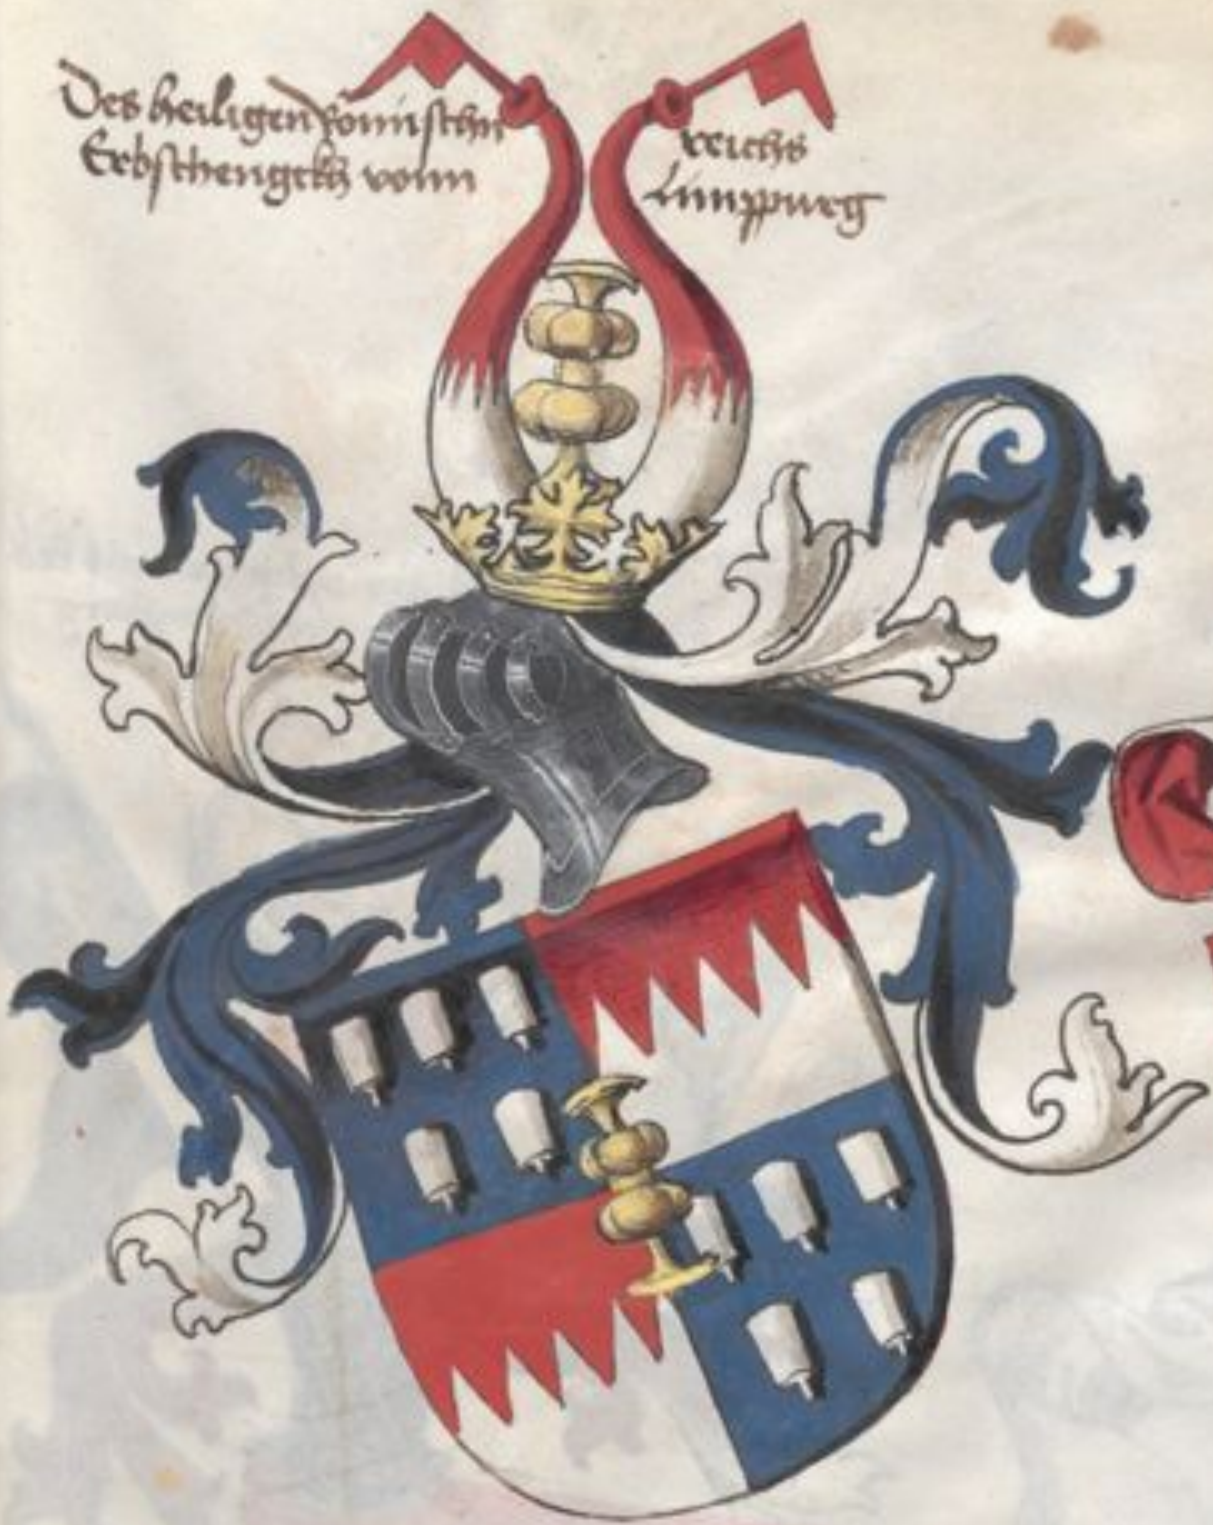 Des heiligen Römischn reichs
Erbschengckh vonn Limppurg